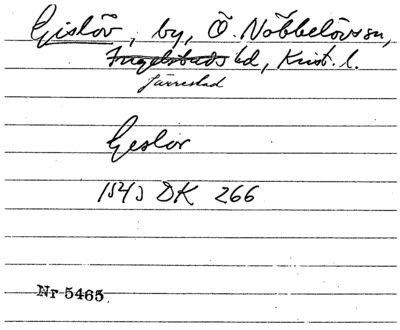 Gislöv, by, Ö. Nöbbelövs sn,
Ingelstads hd, Krist. l.
Järrestad
Geslov
1545 DK 266
Nr 5465